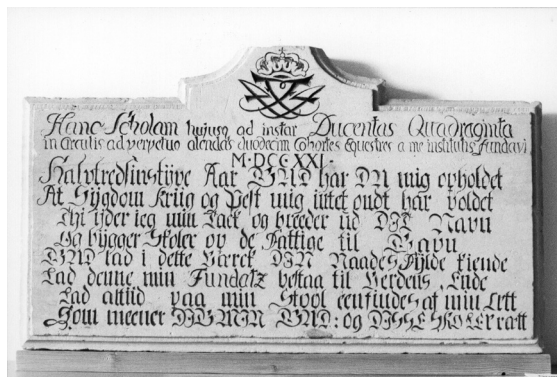 Hanc Scholam hujusq ad instar Ducentas Quadraginta
in circulis ad perpetuo alendas duodecim Cohortes Equestres a me institutis Fundavi
M·DCC·XXI·
Halvtredsinstÿve Aar GUD har DU mig opholdet
At Sÿgdom Kriig og Pest mig intet ondt har voldet
Thi ÿder ieg min Tack og breeder ud DIT Navn
Og bÿgger Skoler op de Fattige til Gavn
GUD lad i dette Værck DIN Naades Fÿlde kiende
Lad denne min Fundatz bestaa til Verdens Ende
Lad altiid paa min Stool eenfindes af min Lett
Som meener DIG MIN GUD: og DISSE SKOLER rætt